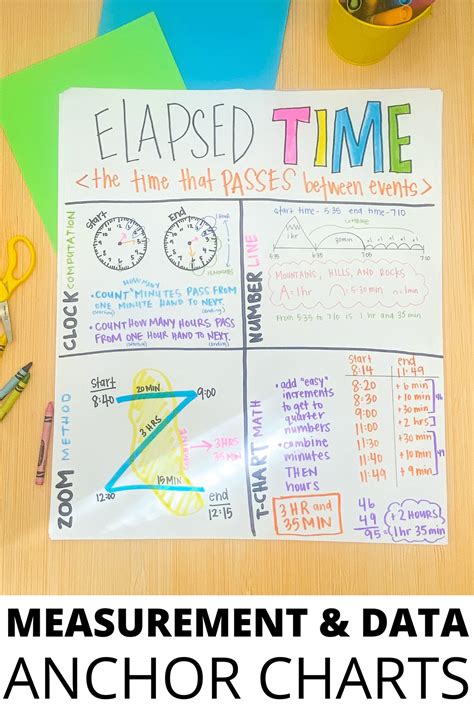 ELAPSED TIME
<the time that PASSES between events>
CLOCK COMPUTATION
start
End
HOW MANY
• COUNT MINUTES PASS FROM
ONE MINUTE HAND TO NEXT.
• COUNT HOW MANY HOURS PASS
FROM ONE HOUR HAND TO NEXT.
NUMBER LINE
start time- 5:35 end time- 7:10
1hr
30min
5:35
6:35
7:05
7:10
MOUNTAINS, HILLS, AND ROCKS
= 1hr
= 5-30 min
n = 1min
From 5:35 to 7:10 is 1 hr and 35min
ZOOM METHOD
start
8:40
20 MIN
9:00
3 HRS
COMBINE
3 HRS
35 MIN
15 MIN
12:00
end
12:15
T-CHART MATH
• add "easy"
increments
to get to
quarter
numbers
• combine
minutes
THEN
hours
3 HR and
35 MIN
start end
8:14 11:49
8:20 + 6 min
8:30 + 10 min
9:00 + 30 min
11:00 + 2 hrs
11:30 + 30 min
11:40 + 10 min
11:49 + 9 min
46
49
95 =
+ 2 HOURS
1hr 35 min
MEASUREMENT & DATA
ANCHOR CHARTS